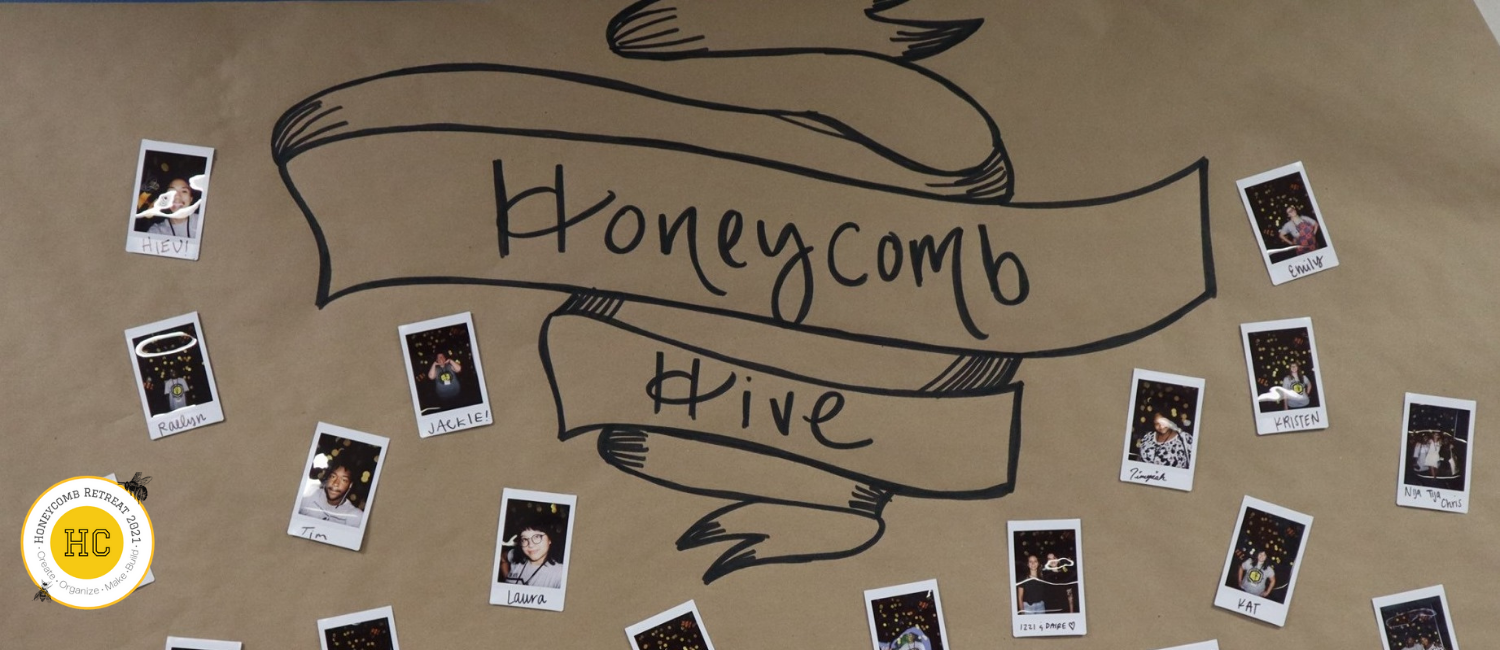 Honeycomb
Hive
HIEVI
Raelyn
JACKIE!
Tim
Laura
Emily
KRISTEN
Nya Tyla
Chris
KAT
IZZI & DAIRE♡
HONEYCOMB RETREAT 2021
HC
· Create · Organize · Make · Build ·